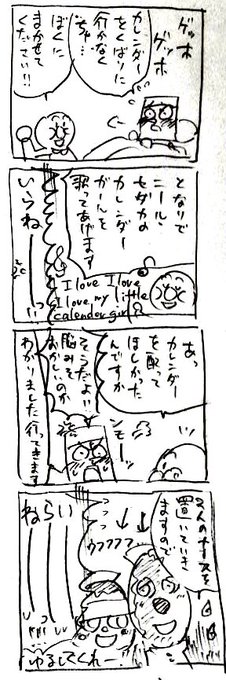 ゲッホ
ゲッホ
カレンダー
をくばりに
行かなく
ちゃ…
ぼくに
まかせて
ください!!
となりで
ニール・
セダカの
カレンダー
ガールを
歌ってあげます
I love I love
I love my little
calender girl
いらねーーっ
あっ
カレンダー
を配って
ほしかった
んですか
ンモー
そうだよ!!
脳みそ
おかしいのか
わかりました行ってきます
2人のナースを
置いていき
ますので
ウフフフフ
ゆるしてくれー